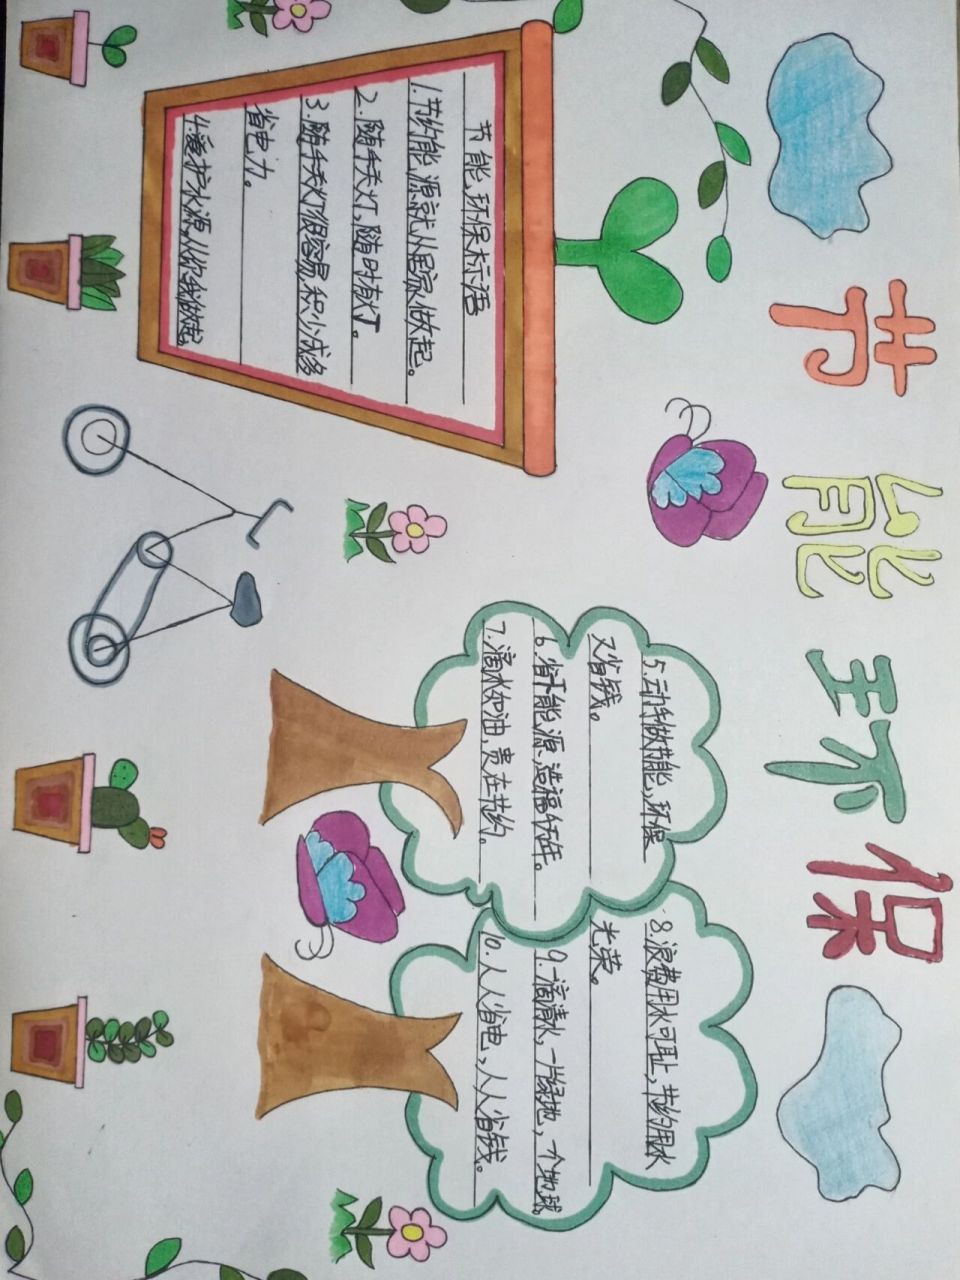 节能环保
节能,环保标语
1.节约能源就从居家做起。
2.随手关灯,随时有灯。
3.随手关灯很容易,积少成多
省电力。
4.爱护水源,从你我做起。
5.动手做节能,环保
又省钱。
6.省下能源、造福千年。
7.滴水如油,贵在节约。
8.浪费用水可耻,节约用水
光荣。
9.一滴清水,一片绿地,一个地球。
10.人人省电,人人省钱。